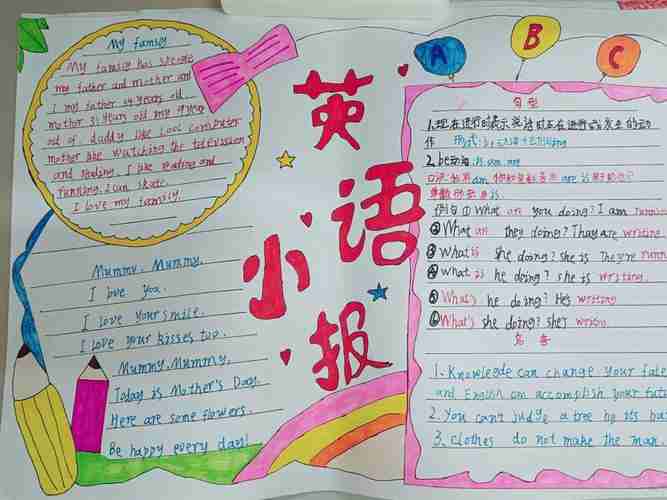 My family
My family has people
my father and mother and
I my father 34 years old
mother 31 years old my 9 years
out of daddy like Look computer
mother like watching the television
and reading. I like reading and
running. I can skate.
I love my family.
Mummy, Mummy,
I love you.
I love your smile.
I love your kisses too.
Mummy, Mummy,
Today is Mother's Day.
Here are some flowers.
Be happy every day!
英
语
小
报
A
B
C
句型
1.现在进行时表示说话时正在进行或发生的动
作 形式: be+动词ing
2. be动词: is am are
单数
例句 ① What are you doing? I am runni
② What are they doing? Thay are writing
③ What is she doing? she is They're runn
④ What is he doing? she is writing.
⑤ What's he doing? He's writing
⑥ What's she doing? she's writing
名言
1. Knowlegde can change your fate
and English am accomplish your futu
2. You can't judge a tree by its ba
3. clothes do not make the man.